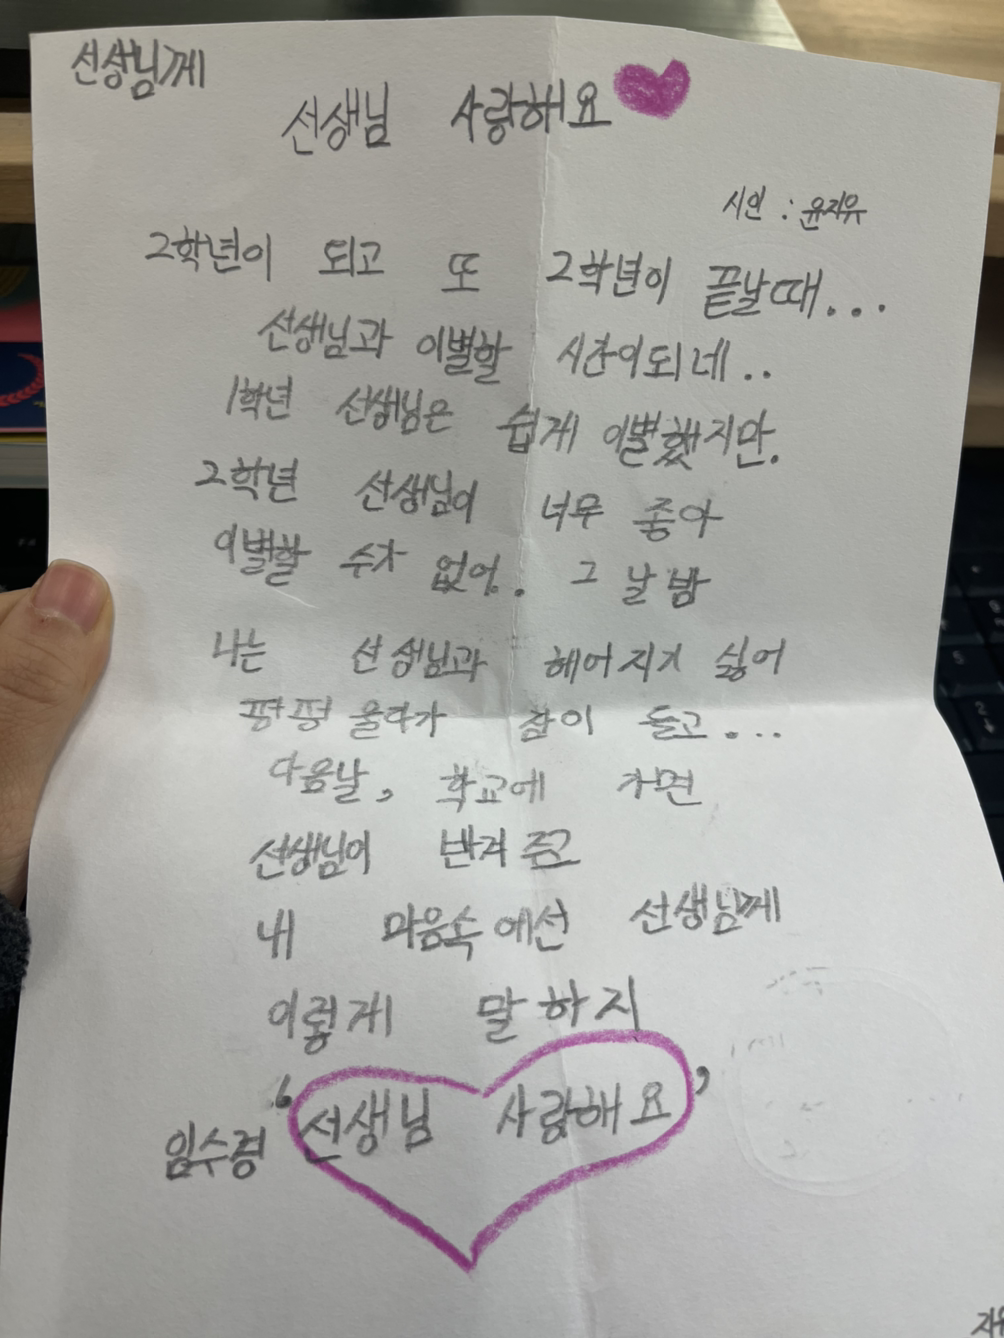 선생님께
선생님 사랑해요
시인 : 윤지유
2학년이 되고 또 2학년이 끝날때...
선생님과 이별할 시간이되네..
1학년 선생님은 쉽게 이별했지만.
2학년 선생님이 너무 좋아
이별할 수가 없어. 그 날 밤
나는 선생님과 헤어지기 싫어
펑펑 울다가 잠이 들고...
다음날, 학교에 가면
선생님이 반겨 주고
내 마음속에선 선생님께
이렇게 말하지
임수령 ‘선생님 사랑해요’